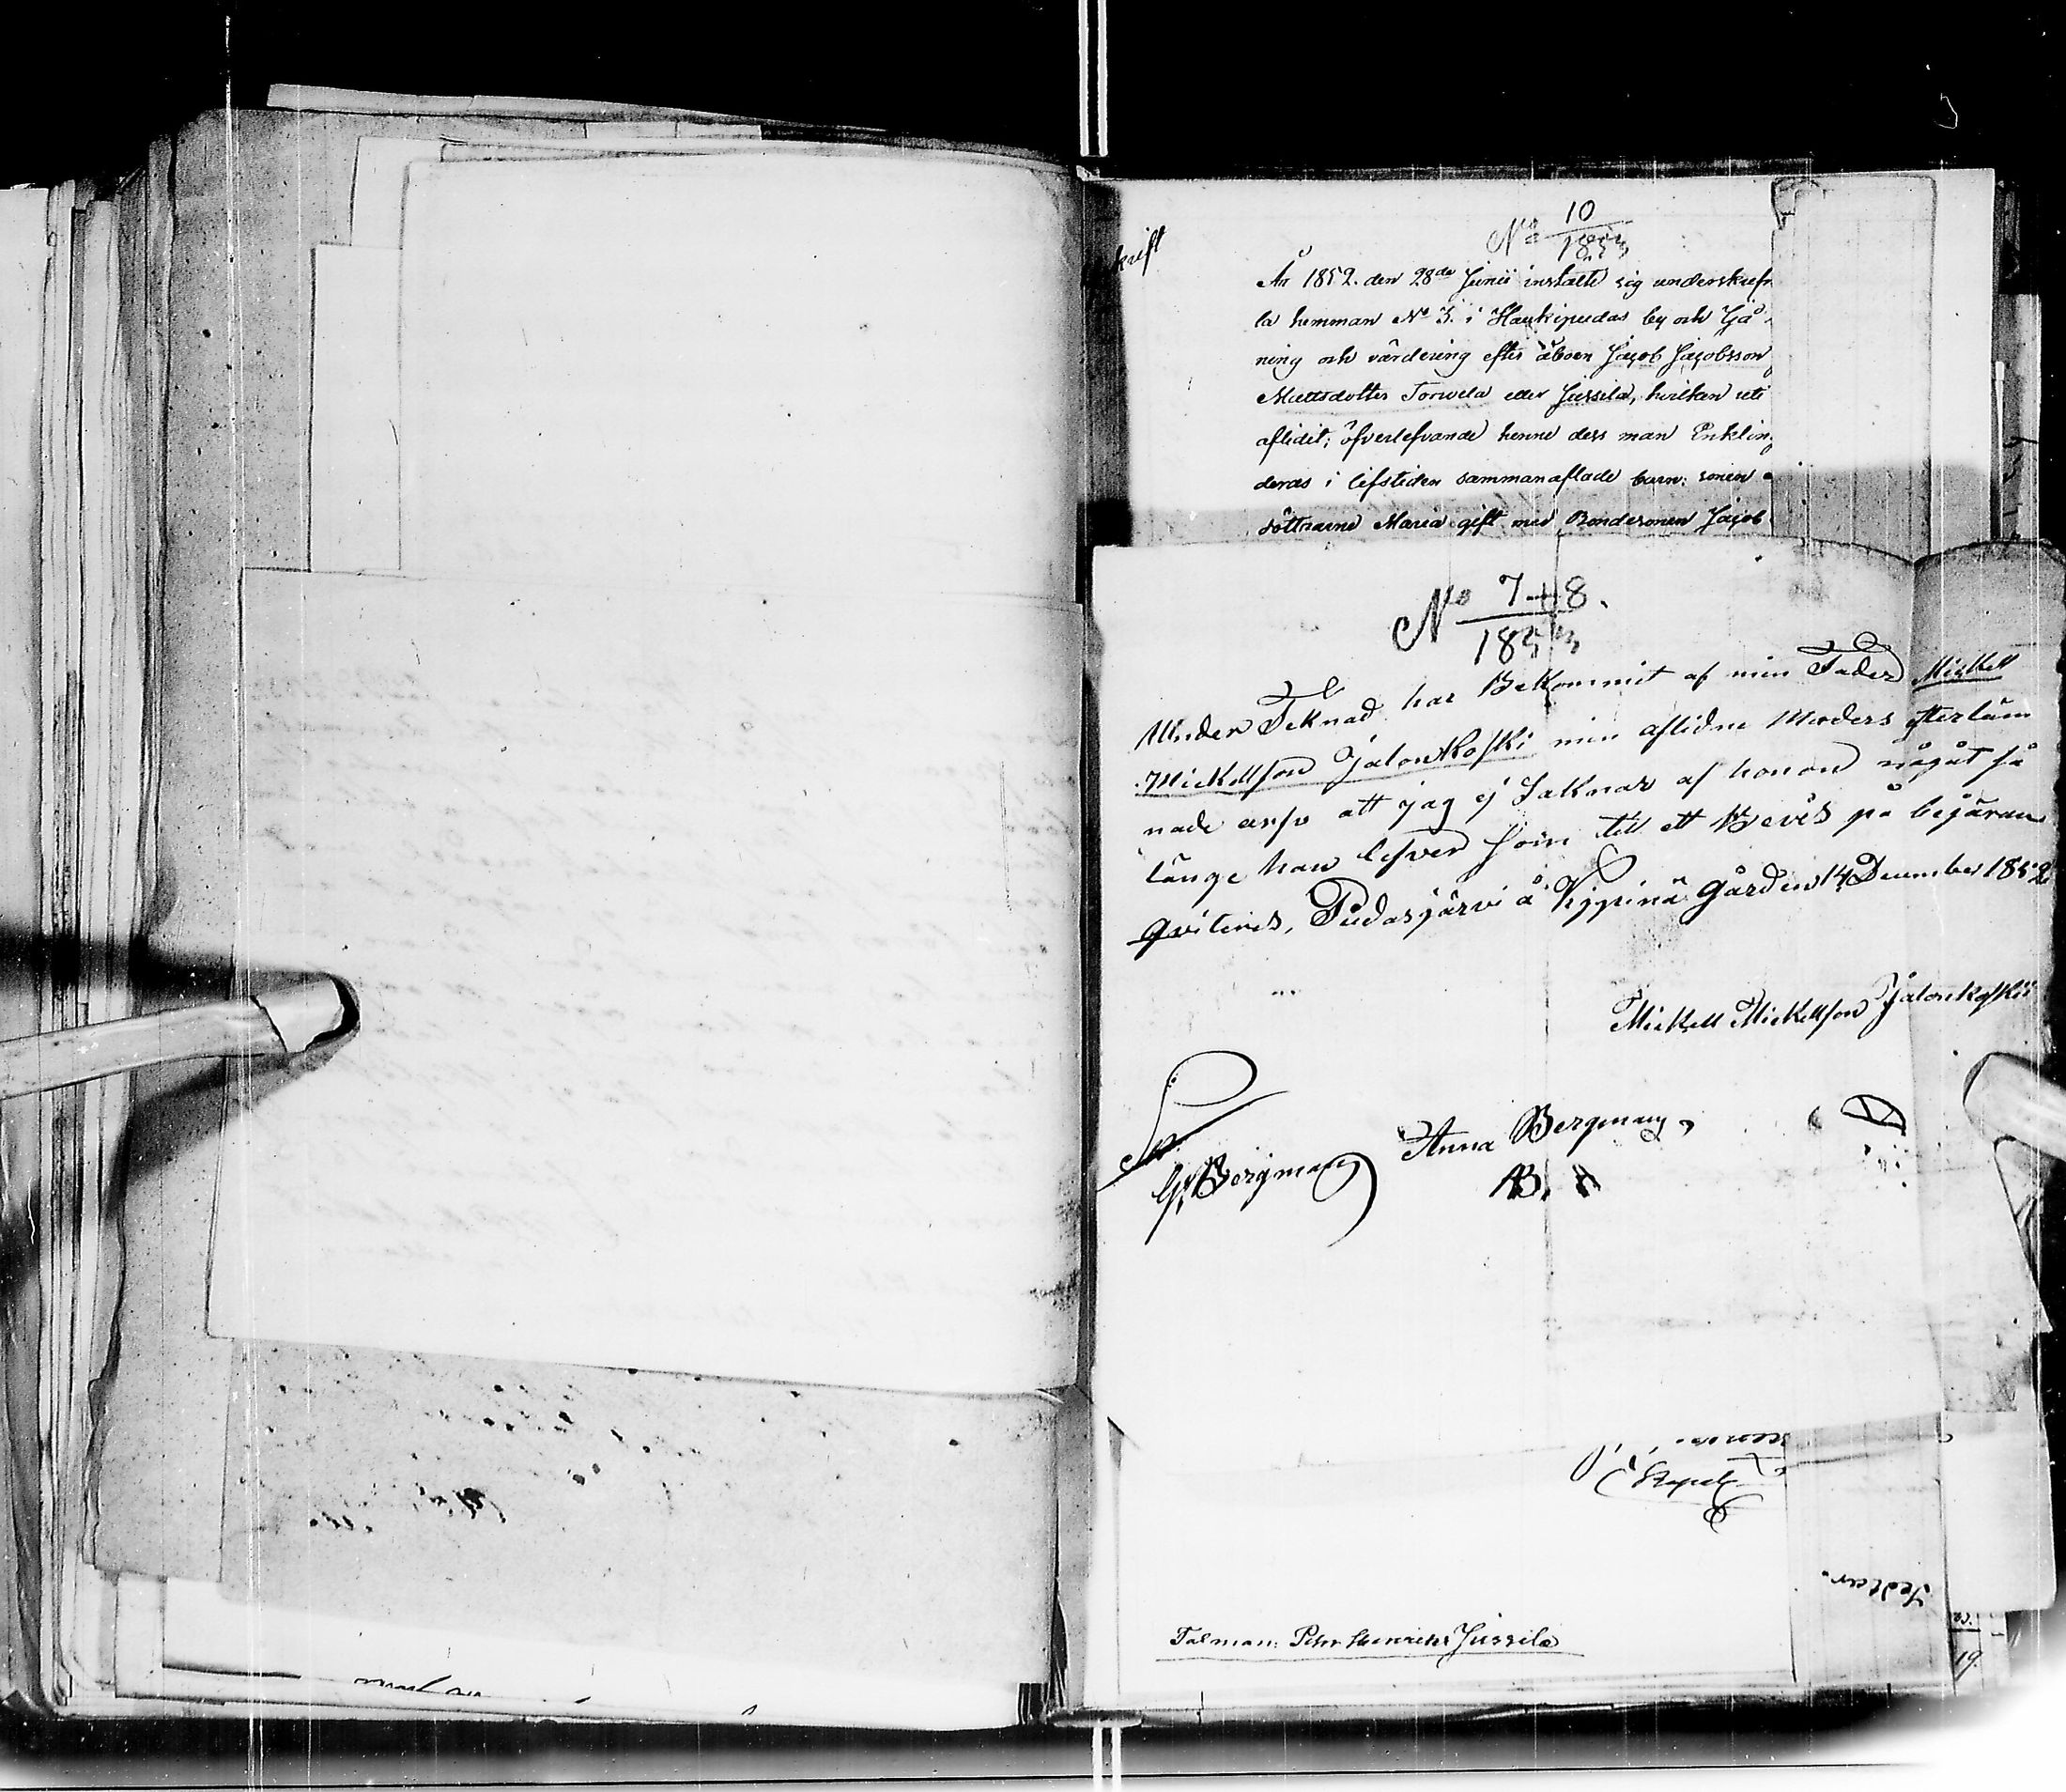 krift
No 10
1853
År 1852. den 28de Junii instälte sig underskrefn
la hemman No 3. i Haukipudas by och Gå
ning och värdering efter åboen Jacob Jacobsson
Mattsdotter Torwela eller Jussila, hvilken
aflidit; öfverlefvande henne dess man Enklin
deras i lifstiden sammanaflade barn: sonen
döttrarne Maria gift med Bondesonen Jacob
No 7+8.
1853
Under Teknad har Bekommit af min Fader Mickell
Mickellson Jalonkoski min aflidne Moders efterläm
nade arfv att jag ej Saknar af honom någåt så
länge han lefver som till ett Bevis på begäran
qviteris, Pudasjärvi å Kyppinä Gården 14 December 1852
Mickell Mickellson Jalonkoskii
G. Bergman
Anna Bergman,
AB.
Talman: Pehr Henriks Jussila
Sedlar.
19.